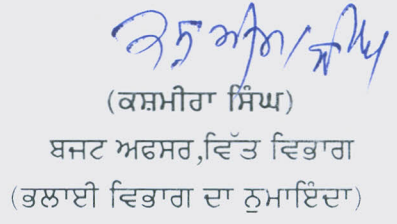 (ਕਸ਼ਮੀਰਾ ਸਿੰਘ)
ਬਜਟ ਅਫਸਰ,ਵਿੱਤ ਵਿਭਾਗ
(ਭਲਾਈ ਵਿਭਾਗ ਦਾ ਨੁਮਾਇੰਦਾ)